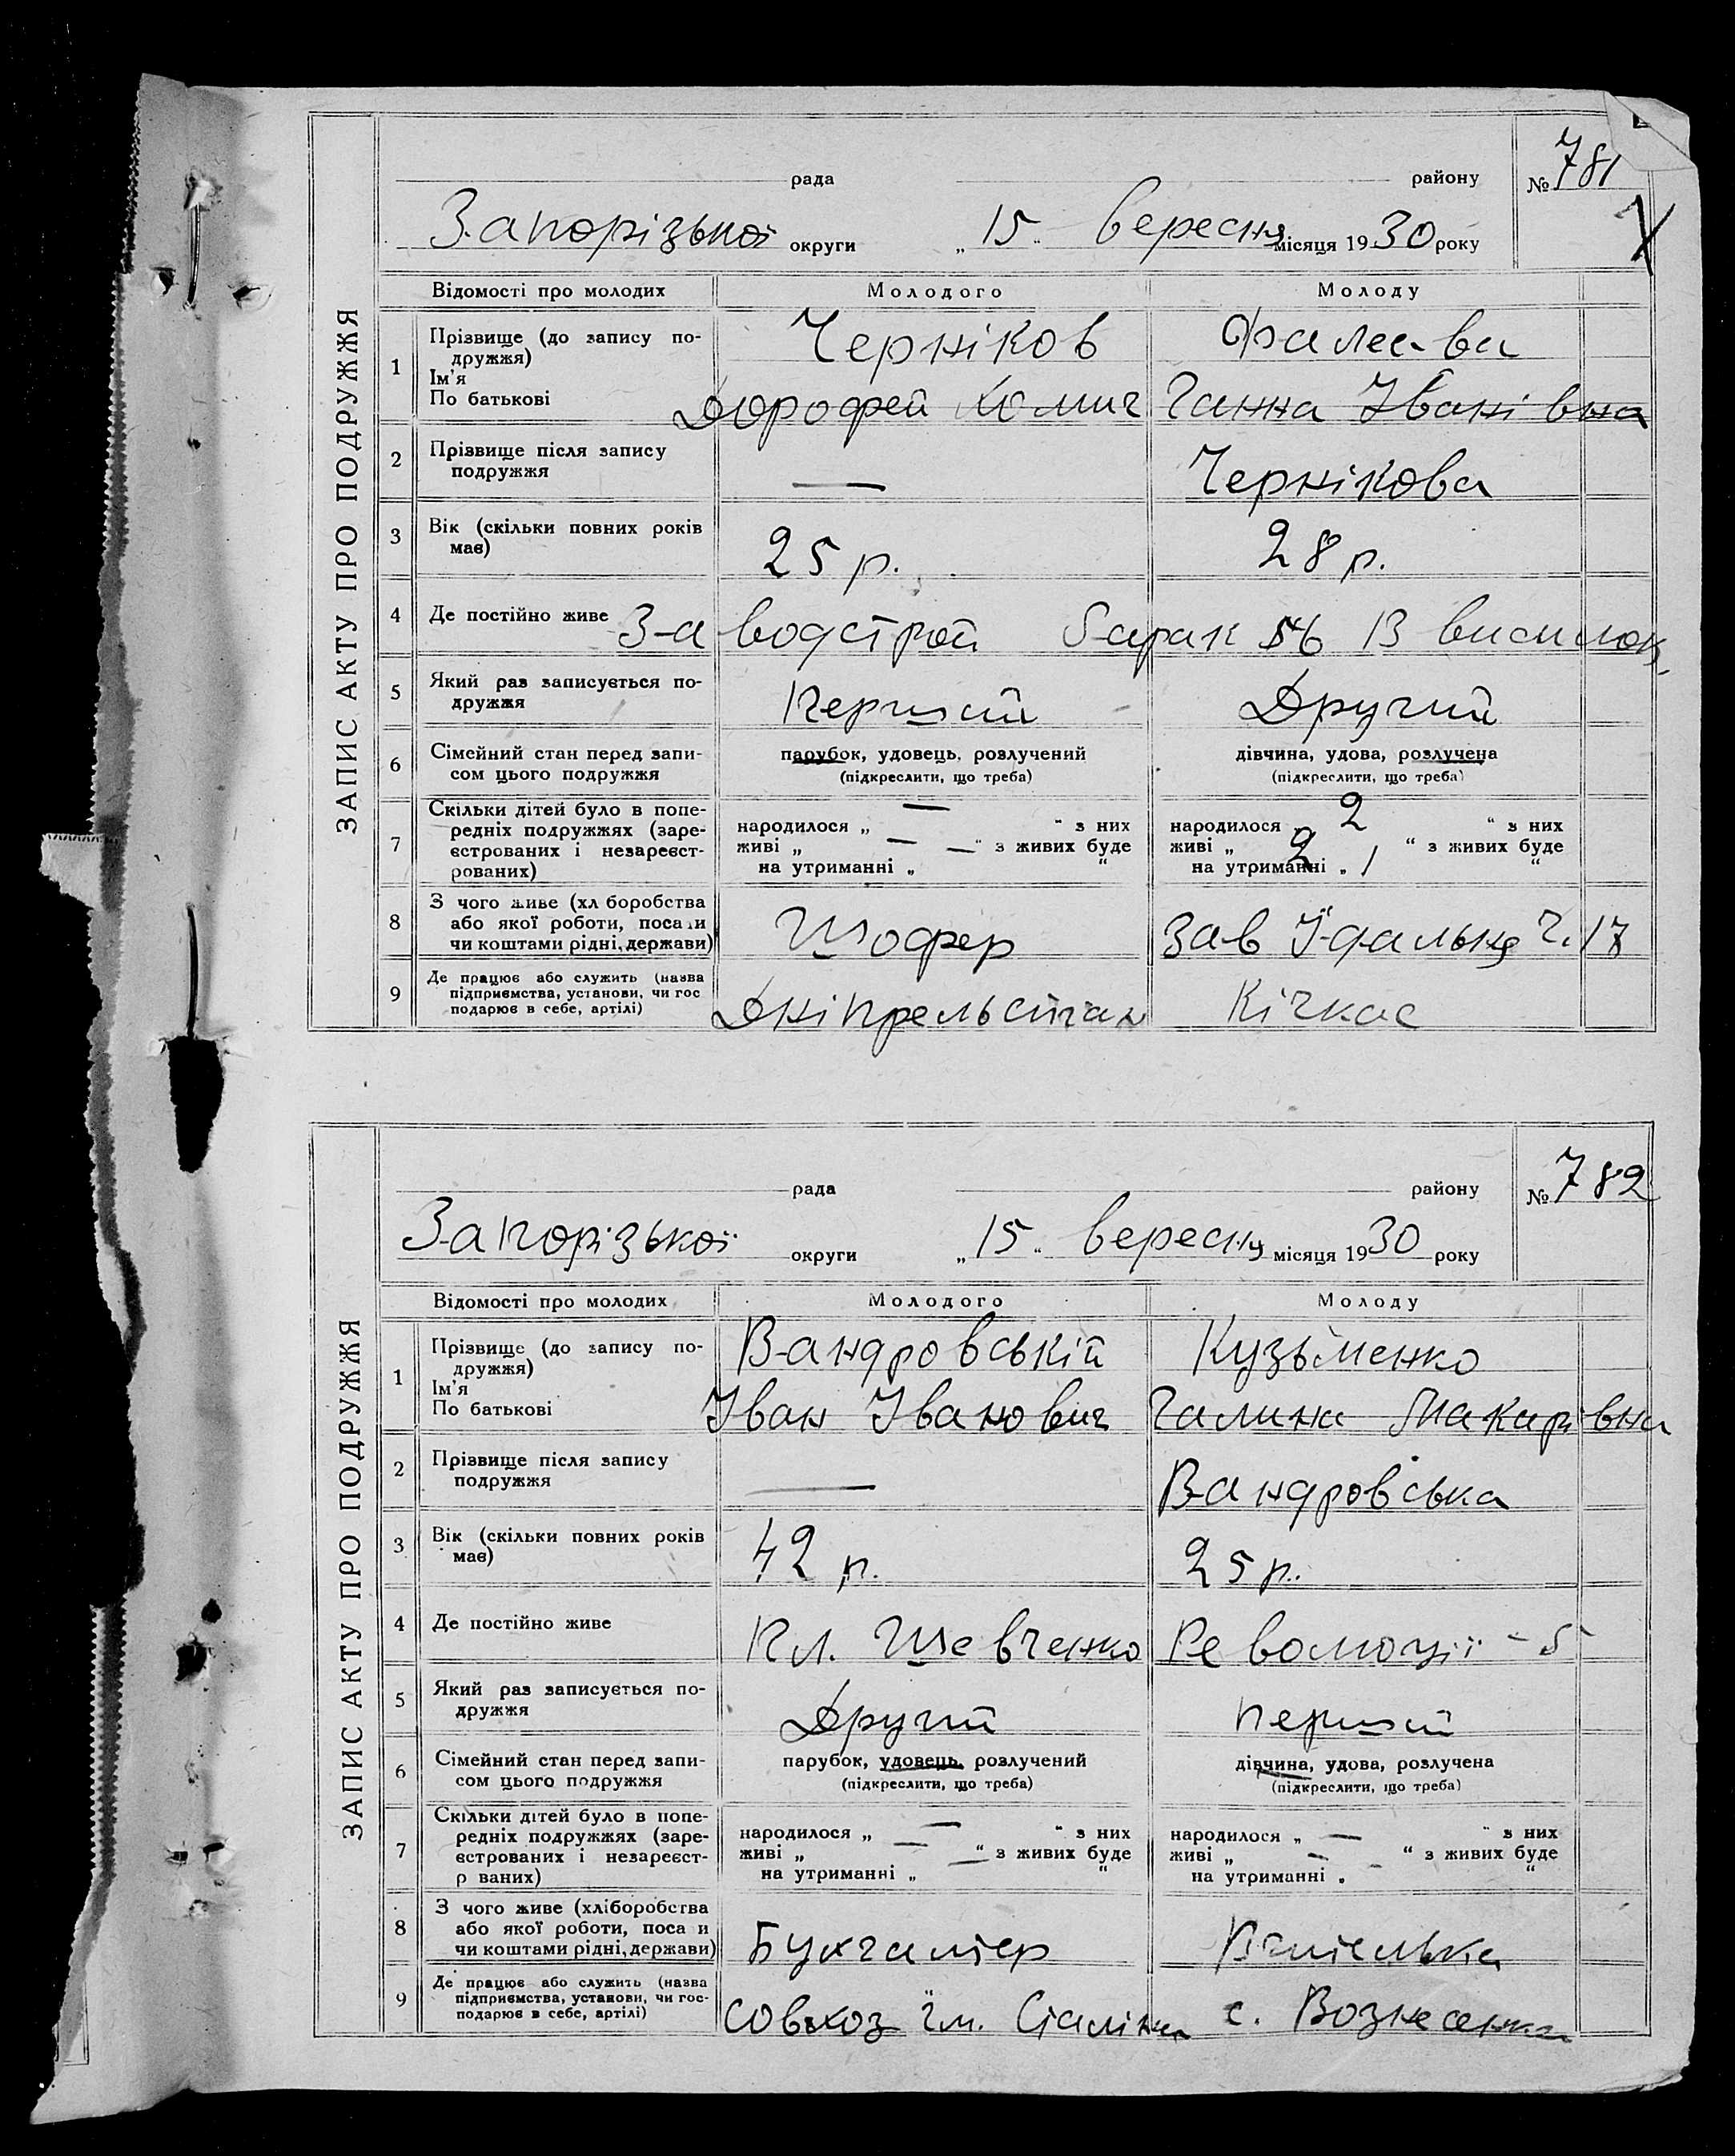 ЗАПИС АКТУ ПРО ПОДРУЖЖЯ
рада району № 781
Запорізької округи „15“ вересня місяця 1930 року
Відомості про молодих Молодого Молоду
1 Прізвище (до запису по-
дружжя)
Ім'я
По батькові
Черніков
Дорофей Хомич
Фалеева
Ганна Іванівна
2 Прізвище після запису
подружжя
— Чернікова
3 Вік (скільки повних років
має)
25 р. 28 р.
4 Де постійно живе Заводстрой барак 56 В висилок
5 Який раз записується по-
дружжя
Перший Другий
6 Сімейний стан перед запи-
сом цього подружжя
парубок, удовець, розлучений
(підкреслити, що треба)
дівчина, удова, розлучена
(підкреслити, що треба)
7 Скільки дітей було в попе-
редніх подружжях (заре-
єстрованих і незареєст-
рованих)
народилося „ — “ з них
живі „ — “ з живих буде
на утриманні „ — “
народилося „ 2 “ з них
живі „ 2 “ з живих буде
на утриманні „ 1 “
8 З чого живе (хл боробства
або якої роботи, поса и
чи коштами рідні, держави)
Шофер Зав Їдальня ч. 17
9 Де працює або служить (назва
підприємства, установи, чи гос
подарює в себе, артілі)
Дніпрельстан Кічкас
ЗАПИС АКТУ ПРО ПОДРУЖЖЯ
рада району № 782
Запорізької округи „15“ вересня місяця 1930 року
Відомості про молодих Молодого Молоду
1 Прізвище (до запису по-
дружжя)
Ім'я
По батькові
Вандровській
Іван Іванович
Кузьменко
Галина Макарівна
2 Прізвище після запису
подружжя
— Вандровська
3 Вік (скільки повних років
має)
42 р. 25 р.
4 Де постійно живе Пл. Шевченко Революції - 5
5 Який раз записується по-
дружжя
Другий Перший
6 Сімейний стан перед запи-
сом цього подружжя
парубок, удовець, розлучений
(підкреслити, що треба)
дівчина, удова, розлучена
(підкреслити, що треба)
7 Скільки дітей було в попе-
редніх подружжях (заре-
єстрованих і незареєст-
р ваних)
народилося „ — “ з них
живі „ — “ з живих буде
на утриманні „ — “
народилося „ — “ з них
живі „ — “ з живих буде
на утриманні „ - “
8 З чого живе (хліборобства
або якої роботи, поса и
чи коштами рідні, держави)
Бухгалтер Вчителька
9 Де працює або служить (назва
підприємства, установи, чи гос-
подарює в себе, артілі)
совхоз їм. Сталіна с. Вознесенка